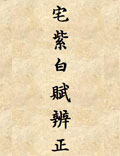 宅紫白賦辨正